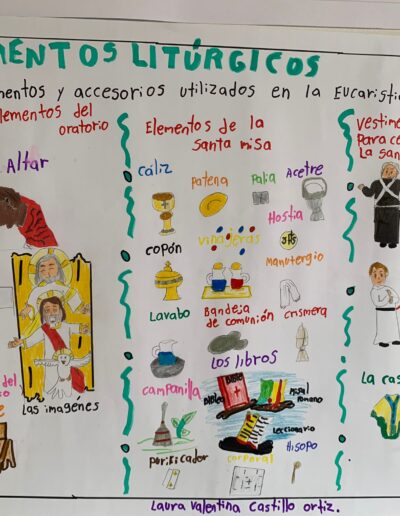 MENTOS LITÚRGICOS
mentos y accesorios utilizados en la Eucaristia
elementos del
oratorio
Altar
Las imagenes
Elementos de la
santa misa
Cáliz
Patena
Palia
Acetre
Hostia
JHS
Copón
Vinajeras
Manutergio
Lavabo
Bandeja
de comunión
Crismera
Los libros
Campanilla
Biblia
Biblia
Misal
romano
Leccionario
Hisopo
Purificador
corporal
Vestime
Para ce
La san
La cas
Laura Valentina Castillo Ortiz.